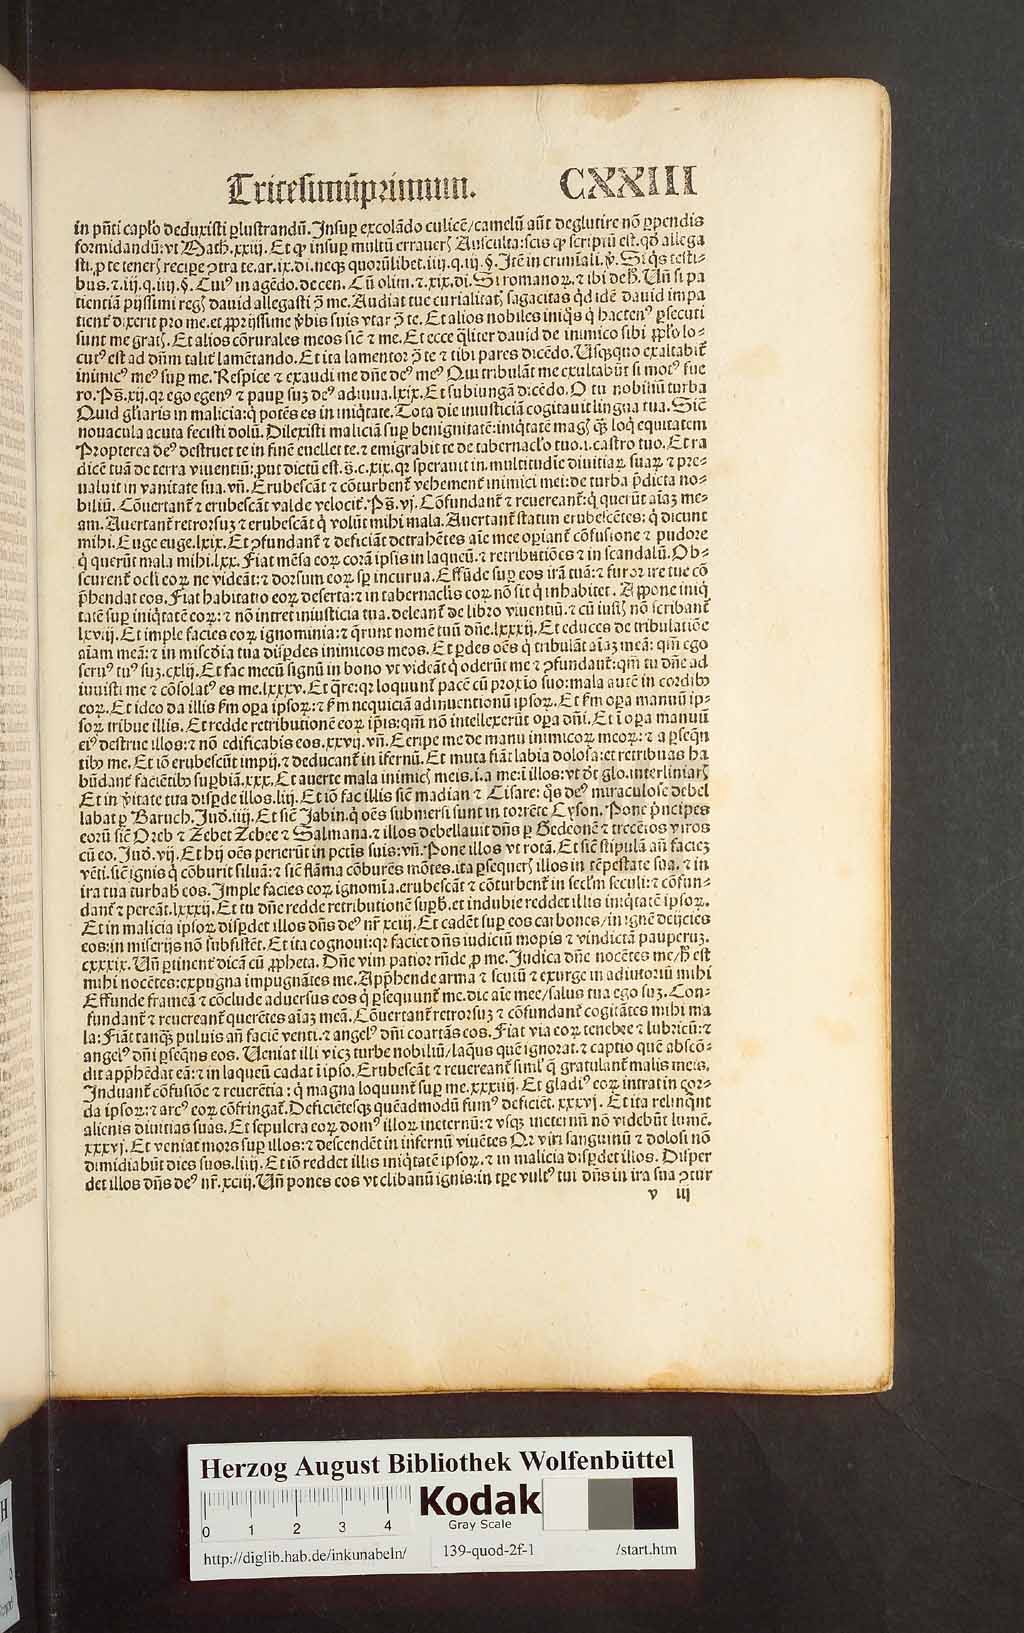 Tricesimũprimum. CXXIII
in pñti caplo deduxisti plustrandũ. Insup excolãdo culicẽ/camelũ aũt deglutire nõ ppendis
formidandũ: vt Math. xxiij. Et insup multũ Ausculta: scis scriptũ est. qd allega
sti, p te recipe ꝯtra te. ar. ix. di. neqꝫ quorũlibet. iiij. q. iij. §. Itẽ in criminali. Si qs testi-
bus. ⁊ iij. q. iiij. §. Cuiꝰ in agẽdo. de cen. Cũ olim. ⁊ xix. di. Si romanoꝝ. ⁊ ibi Uñ si pa
tientiã pijssimi dauid allegasti me. Audiat tue sagacitas qd idẽ dauid impa
dixerit pro me. et pprijssime suis vtar te. Et alios nobiles iniqs q hactenꝰ psecuti
sunt me Et alios cõrurales meos sicẽ ⁊ me. Et ecce qliter dauid de inimico sibi lo-
cutꝰ est ad dñm lamẽtando. Et ita lamentor te ⁊ tibi pares dicẽdo. Usqꝫquo exaltabit
inimicꝰ meꝰ sup me. Respice ⁊ exaudi me dñe deꝰ meꝰ Qui tribulãt me exultabũt si motꝰ fue
ro. Ps. xij. qꝛ ego egenꝰ ⁊ paup suꝫ deꝰ adiuua. lxix. Et subiungã dicẽdo. O tu nobiliũ turba
Quid gliaris in malicia: q potẽs es in iniqtate. Tota die iniusticiã cogitauit lingua tua. Sicẽ
nouacula acuta fecisti dolũ. Dilexisti maliciã sup benignitatẽ: iniqtatẽ loq equitatem
Propterea deꝰ destruet te in finẽ euellet te. ⁊ emigrabit te de tabernaclo tuo. i. castro tuo. Et ra
dicẽ tuã de terra viuentiũ: put dictũ est. s. c. xix. qꝛ sperauit in multitudĩe diuitiaꝝ suaꝝ ⁊ pre-
ualuit in vanitate sua. vñ. Erubescãt ⁊ cõturbent vehement inimici mei: de turba pdicta no-
biliũ. Cõuertant ⁊ erubescãt valde velocit. Ps. vj. Cõfundant ⁊ reuereant: q querũt aĩaꝫ me-
am. Auertant retrorsuꝫ ⁊ erubescãt q volũt mihi mala. Auertant statum erubescẽtes: q dicunt
mihi. Euge euge. lxix. Et ꝯfundant ⁊ deficiãt detrahẽtes aĩe mee opiant cõfusione ⁊ pudore
q querũt mala mihi. lxx. Fiat mẽsa eoꝝ corã ipsis in laqueũ. ⁊ retributiões ⁊ in scandalũ. Ob-
scurent ocli eoꝝ ne videãt: ⁊ dorsum eoꝝ sp incurua. Effũde sup eos irã tuã: ⁊ furor ire tue cõ
phendat eos. Fiat habitatio eoꝝ deserta: ⁊ in tabernaclis eoꝝ nõ sit q inhabitet. Appone iniq
tatẽ sup iniqtatẽ eoꝝ: ⁊ nõ intret iniusticia tua. deleant de libro viuentiũ. ⁊ cũ iustis nõ scribant
lxviij. Et imple facies eoꝝ ignominia: ⁊ qrunt nomẽ tuũ dñe. lxxxij. Et educes de tribulatiõe
aĩam meã: ⁊ in miscdia tua dispdes inimicos meos. Et pdes oẽs q tribulãt aĩaꝫ meã: qm ego
seruꝰ tuꝰ suꝫ. cxlij. Et fac mecũ signũ in bono vt videãt q oderũt me ⁊ ꝯfundant: qm tu dñe ad
iuuisti me ⁊ cõsolatꝰ es me. lxxxv. Et qre: qꝛ loquunt pacẽ cũ proxĩo suo: mala autẽ in cordibꝰ
eoꝝ. Et ideo da illis km opa ipsoꝝ: ⁊ km nequiciã adinuentionũ ipsoꝝ. Et km opa manuũ ip-
soꝝ tribue illis. Et redde retributionẽ eoꝝ ipis: qm nõ intellexerũt opa dñi. Et ĩ opa manuũ
eiꝰ destrue illos: ⁊ nõ edificabis eos. xxvij. vñ. Eeripe me de manu inimicoꝝ meoꝝ: ⁊ a pseqñ
tibꝰ me. Et iõ erubescũt impij. ⁊ deducant in ifernũ. Et muta fiãt labia dolosa: et retribuas ha
bũdant faciẽtibꝰ supbiã. xxx. Et auerte mala inimicis meis. i. a me: ĩ illos: vt dt glo. interliniaris
Et in vitate tua dispde illos. liij. Et iõ fac illis sicẽ madian ⁊ Cisare: qs deꝰ miraculose debel
labat p Baruch. Jud. iiij. Et sicẽ Jabin. q oẽs submersi sunt in torrẽte Cyson. Pone pncipes
eorũ sicẽ Oreb ⁊ Zebet Zebee ⁊ Salmana. ⁊ illos debellauit dñs p Gedeonẽ ⁊ trecẽtos viros
cũ eo. Jud. vij. Et hij oẽs perierũt in pctis suis: vñ. Pone illos vt rotã. Et sicẽ stipulã añ facieꝫ
vẽti. sicẽ ignis q cõburit siluã: ⁊ sicẽ flãma cõburẽs mõtes. ita psequeris illos in tẽpestate sua. ⁊ in
ira tua turbab eos. Imple facies eoꝝ ignomĩa. erubescãt ⁊ cõturbent in seclm seculi: ⁊ cõfun-
dant ⁊ pereãt. lxxxij. Et tu dñe redde retributionẽ supb. et indubie reddet illis iniqtatẽ ipsoꝝ.
Et in malicia ipsoꝝ dispdet illos dñs deꝰ nr xciij. Et cadẽt sup eos carbones/in ignẽ deijcies
eos: in miserijs nõ subsistẽt. Et ita cognoui: qꝛ faciet dñs iudiciũ inopis ⁊ vindictã pauperuꝫ.
cxxxix. Uñ ptinent dicã cũ ppheta. Dñe vim patior rñde p me. Judica dñe nocẽtes me/h est
mihi nocẽtes: expugna impugnãtes me. Apphende arma ⁊ scutũ ⁊ exurge in adiutoriũ mihi
Effunde frameã ⁊ cõclude aduersus eos q psequunt me. dic aĩe mee/salus tua ego suꝫ. Con-
fundant ⁊ reuereant querẽtes aĩaꝫ meã. Cõuertant retrorsuꝫ ⁊ cõfundant cogitãtes mihi ma
la: Fiãt tanqꝫ puluis añ faciẽ venti. ⁊ angelꝰ dñi coartãs eos. Fiat via eoꝝ tenebre ⁊ lubricũ: ⁊
angelꝰ dñi pseqñs eos. Ueniat illi vicꝫ turbe nobiliũ/laqꝰ quẽ ignorat. ⁊ captio quẽ abscõ-
dit apphẽdat eã: ⁊ in laqueũ cadat ĩ ipso. Erubescãt ⁊ reuereant siml q gratulant malis meis.
Induant cõfusiõe ⁊ reuerẽtia: q magna loquunt sup me. xxxiiij. Et gladiꝰ eoꝝ intrat in cor-
da ipsoꝝ: ⁊ arcꝰ eoꝝ cõfringat. Deficiẽtesqꝫ quẽadmodũ fumꝰ deficiẽt. xxxvj. Et ita relinqnt
alienis diuitias suas. Et sepulcra eoꝝ domꝰ illoꝝ ineternũ: ⁊ vsqꝫ ineternũ nõ videbũt lumẽ.
xxxvj. Et veniat mors sup illos: ⁊ descendẽt in infernũ viuẽtes Qꝛ viri sanguinũ ⁊ dolosi nõ
dimidiabũt dies suos. liiij. Et iõ reddet illis iniqtatẽ ipsoꝝ. ⁊ in malicia dispdet illos. Disper
det illos dñs deꝰ nr. xciij. Uñ pones eos vt clibanũ ignis: in tpe vultꝰ tui dñs in ira sua ꝯtur
v iij
Herzog August Bibliothek Wolfenbüttel
0 1 2 3 4
Kodak
Gray Scale
http://diglib.hab.de/inkunabeln/ 139-quod-2f-1 /start.htm